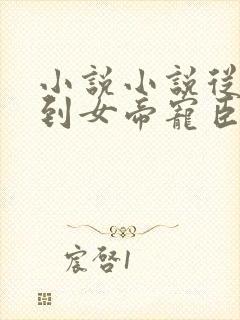 小說小說從
到女帝寵臣
宸啓1